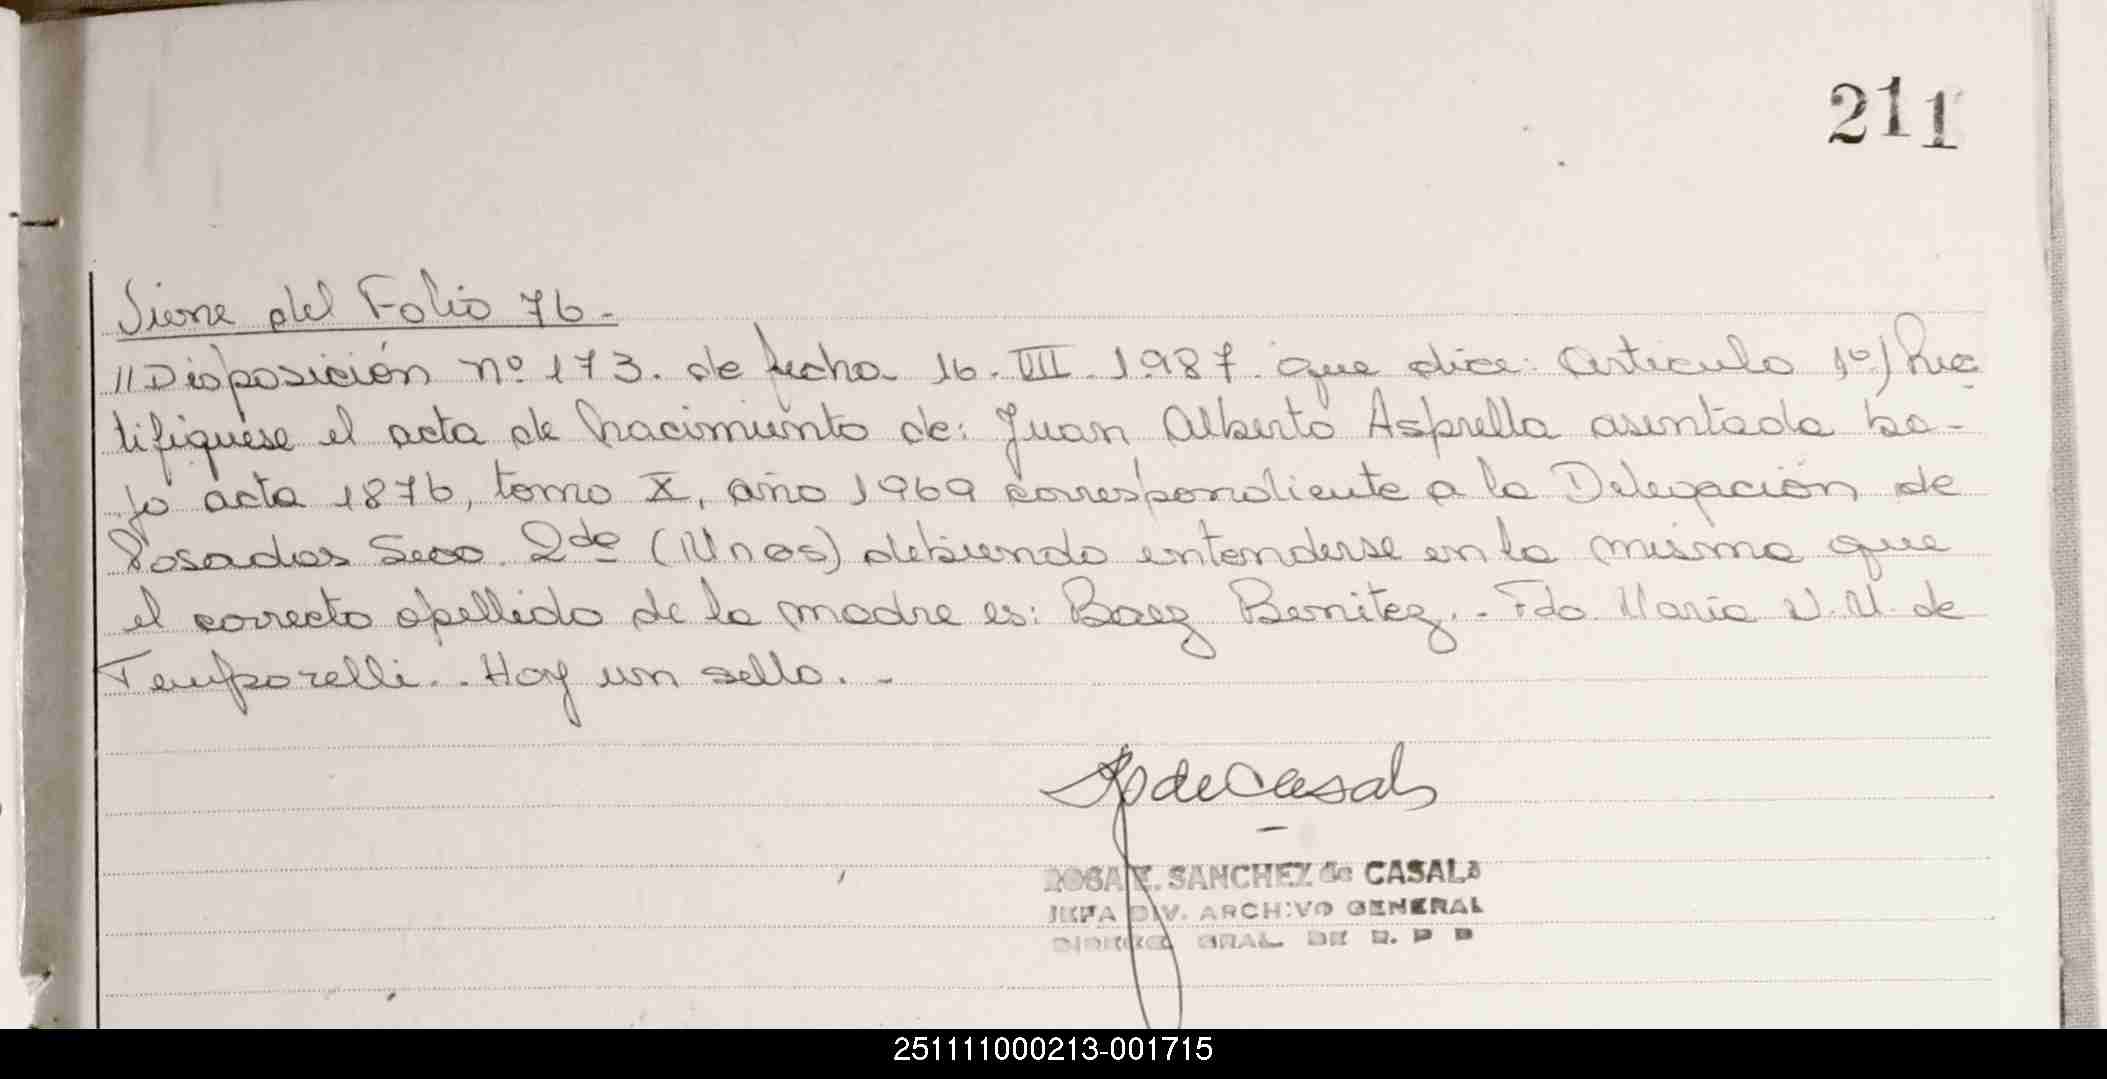 211
Viene del Folio 76.-
//Disposición nº 173. de fecha 16. VII. 1.987. que dice: Artículo 1º) Rec
tifiquése el acta de Nacimiento de: Juan Alberto Asprella asentada ba-
jo acta 1876, tomo X, año 1969 correspondiente a la Delegación de
Posadas Secc. 2da (Mnes) debiendo entenderse en la misma que
el correcto apellido de la madre es: Baez Benitez.- Fdo. Maria N. M. de
Temporelli.. Hay un sello.-
SdeCasals
ROSA E. SANCHEZ de CASALS
JEFA DIV. ARCHIVO GENERAL
DIRECC. GRAL. DE R. P P
251111000213-001715